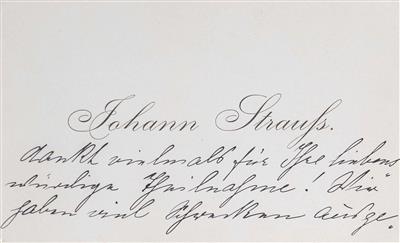 Johann Strauß.
dankt vielmals für Ihre liebens
würdige Theilnahme! Wir
haben viel Schrecken ausge.